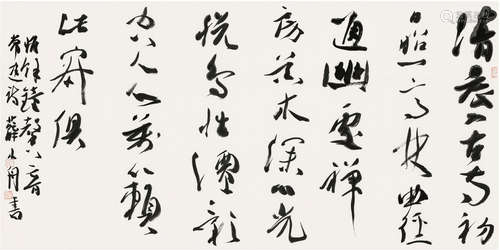 清晨入古寺初
日照一高林曲徑
通幽處禪
房花木深山光
悦鳥性潭影
空人心萬籟
此寂俱
惟餘鐘磬音
常建詩 薛 書